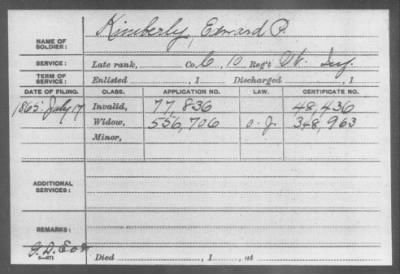 NAME OF SOLDIER: Kimberly, Edward P.
SERVICE: Late rank, Co. G, 10 Reg't Inf.
TERM OF SERVICE: Enlisted , 1 Discharged , 1
DATE OF FILING. CLASS. APPLICATION NO. LAW. CERTIFICATE NO.
1865 July 17 Invalid, 77,836 48,436
Widow, 556,706 348,963
Minor,
ADDITIONAL SERVICES:
REMARKS:
Died , 1 , at